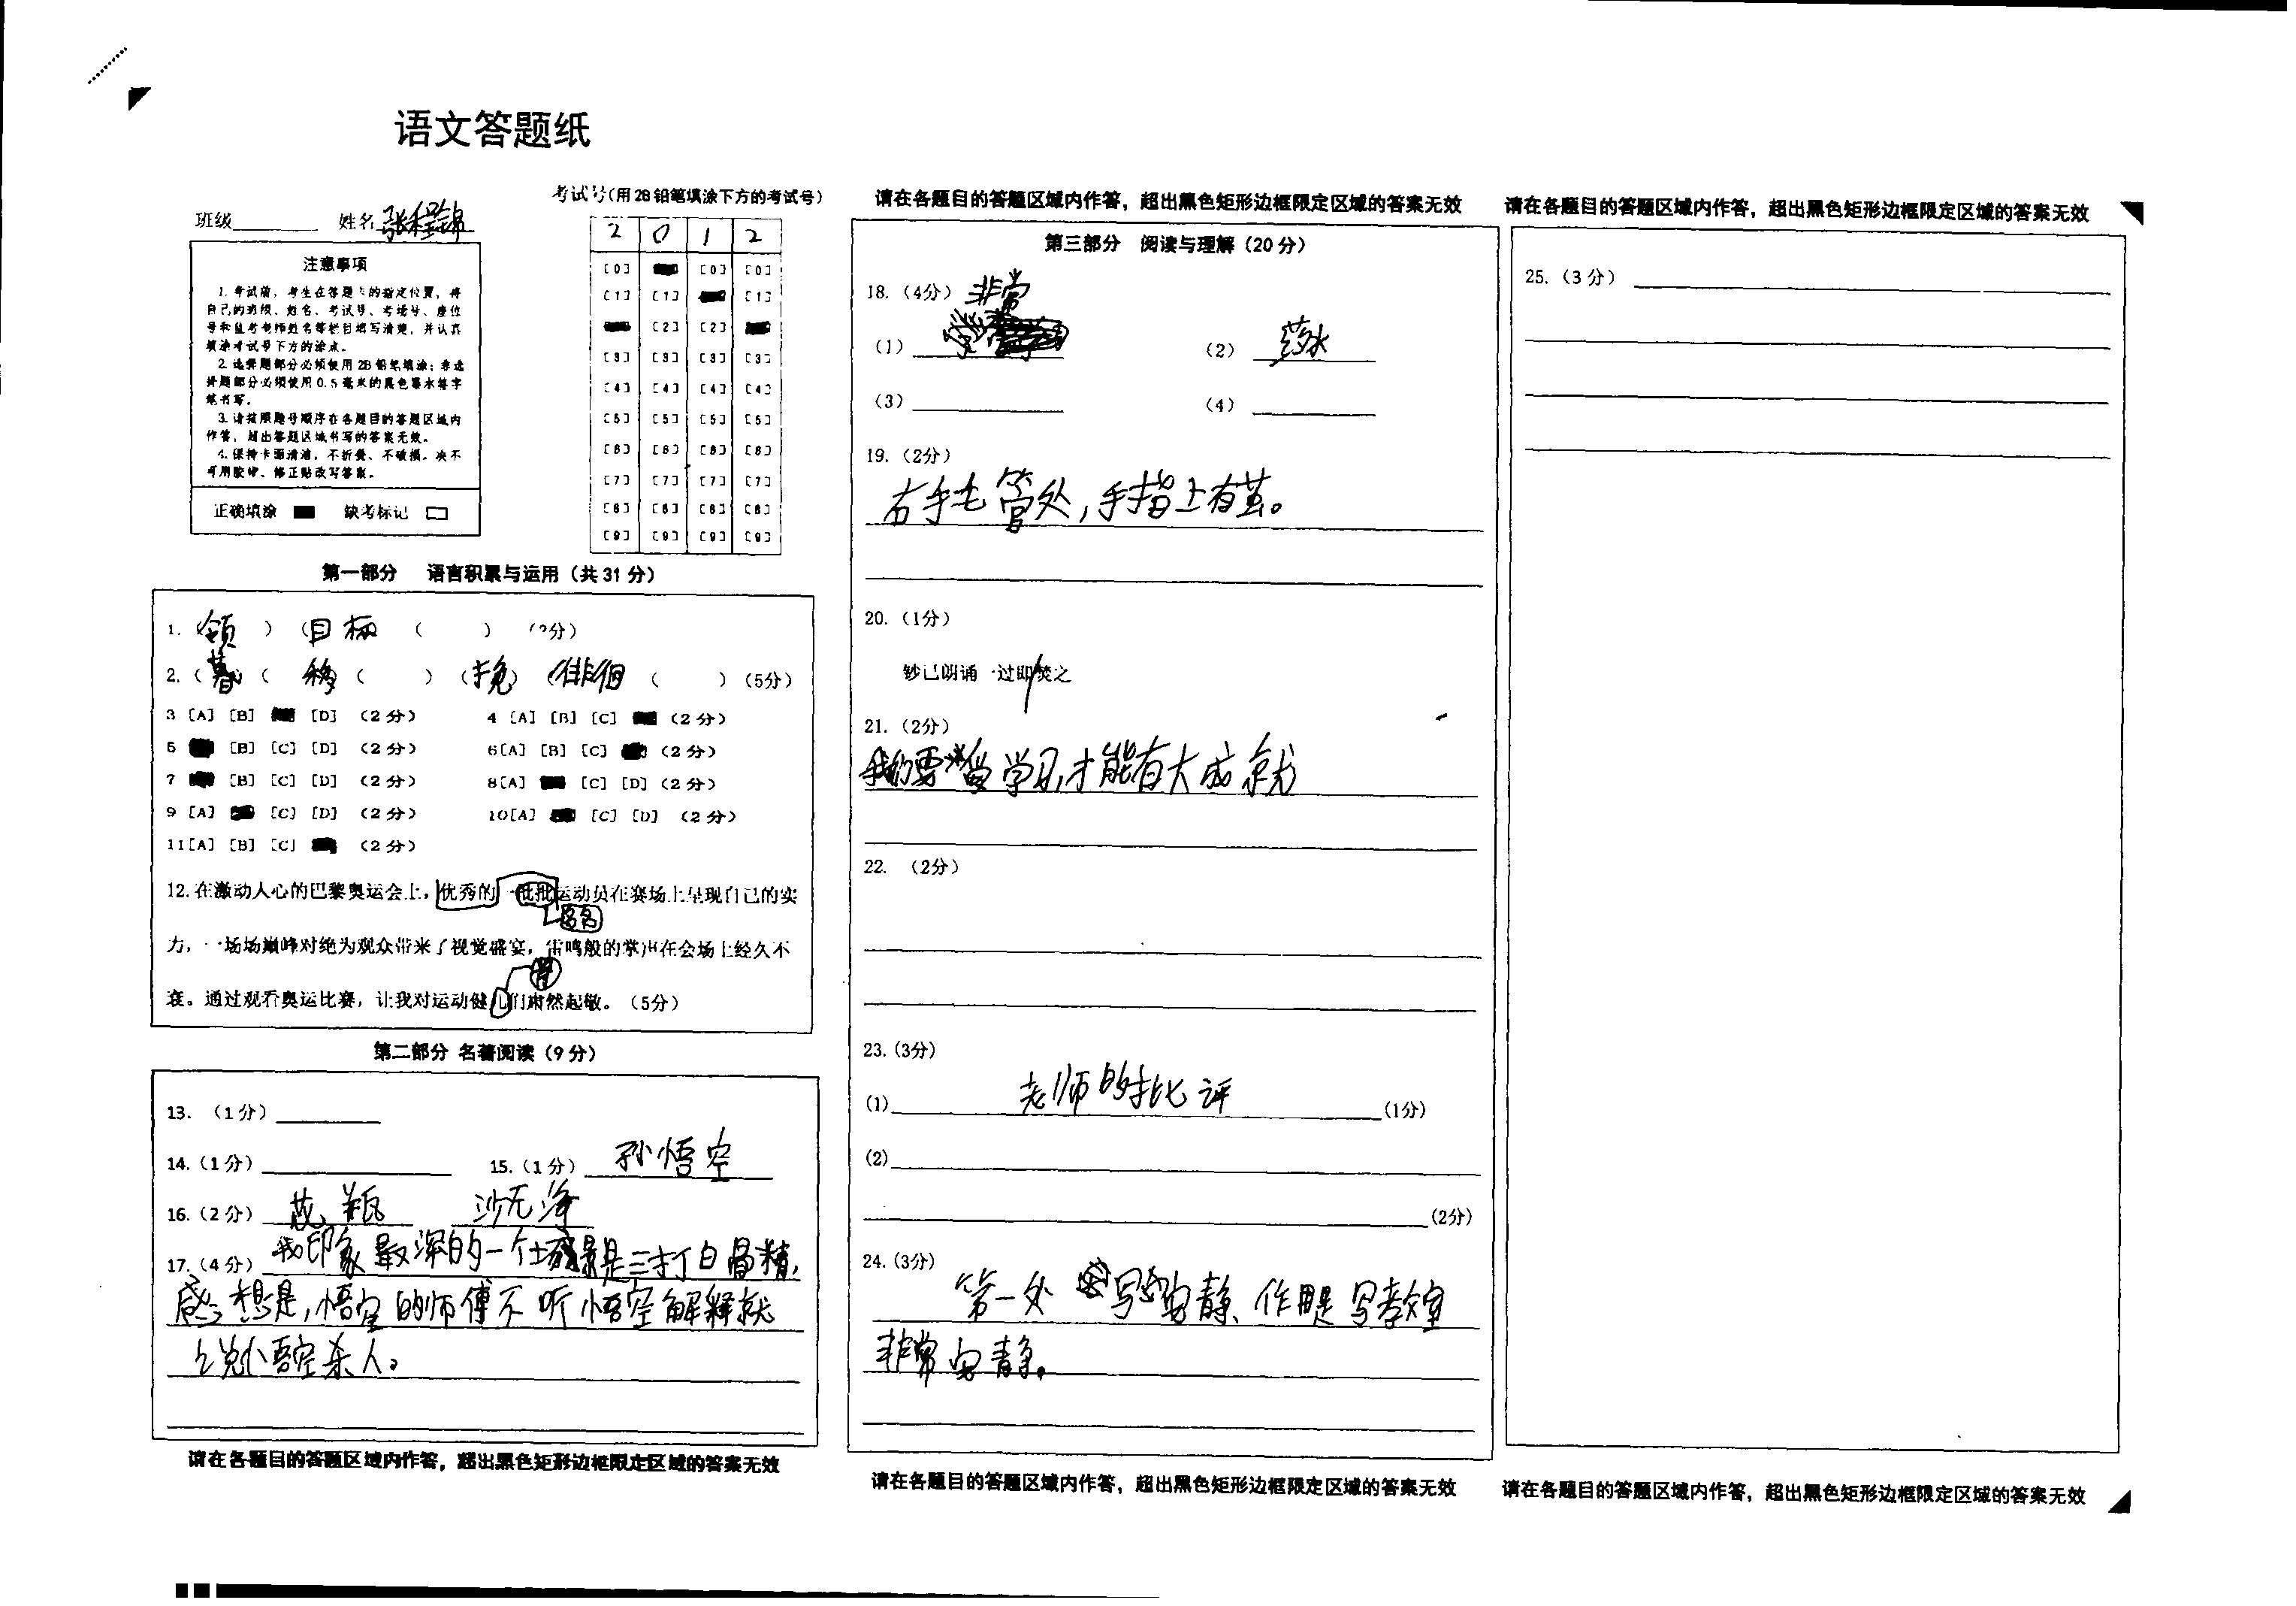 语文答题纸
班级 姓名 张程锦
考试号(用2B铅笔填涂下方的考试号)
2 0 1 2
[0] [0] [0]
[1] [1] [1]
[2] [2]
[3] [3] [3] [3]
[4] [4] [4] [4]
[5] [5] [5] [5]
[6] [6] [6] [6]
[7] [7] [7] [7]
[8] [8] [8] [8]
[9] [9] [9] [9]
注意事项
1. 考试前,考生在答题卡的指定位置,将
自己的班级、姓名、考试号、考场号、座位
号和监考老师姓名等栏目填写清楚,并认真
填涂考试号下方的涂点。
2. 选择题部分必须使用2B铅笔填涂;非选
择题部分必须使用0.5毫米的黑色墨水签字
笔书写。
3. 请按照题号顺序在各题目的答题区域内
作答,超出答题区域书写的答案无效。
4. 保持卡面清洁,不折叠、不破损。决不
可用胶带、修正贴改写答案。
正确填涂 缺考标记
第一部分 语言积累与运用(共31分)
1. (领) (目标 ( ) (2分)
2. (暮 ( 移 ( ) (挽) (徘徊 ( ) (5分)
3 [A] [B] [D] (2分) 4 [A] [B] [C] (2分)
5 [B] [C] [D] (2分) 6[A] [B] [C] (2分)
7 [B] [C] [D] (2分) 8[A] [C] [D] (2分)
9 [A] [C] [D] (2分) 10[A] [C] [D] (2分)
11[A] [B] [C] (2分)
12.在激动人心的巴黎奥运会上,优秀的一批批运动员在赛场上呈现自己的实
名名
力,一场场巅峰对绝为观众带来了视觉盛宴,雷鸣般的掌声在会场上经久不
衰。通过观看奥运比赛,让我对运动健儿们肃然起敬。(5分)
第二部分 名著阅读(9分)
13. (1分)
14.(1分) 15.(1分) 孙悟空
16.(2分) 沙无净
17.(4分) 我印象最深的一个场景是三打白骨精,
感想是,悟空的师傅不听悟空解释就
悟空杀人。
请在各题目的答题区域内作答,超出黑色矩形边框限定区域的答案无效
请在各题目的答题区域内作答,超出黑色矩形边框限定区域的答案无效
第三部分 阅读与理解(20分)
18.(4分) 非常
(1) (2) 药水
(3) (4)
19.(2分)
右手毛管处,手指上有茧。
20.(1分)
钞已朗诵一过即焚之
21.(2分)
我们要 学习,才能有大成就
22. (2分)
23.(3分)
(1) 老师的批评 (1分)
(2)
(2分)
24.(3分)
第一处 写 安静、作用是写教室
非常安静。
请在各题目的答题区域内作答,超出黑色矩形边框限定区域的答案无效
请在各题目的答题区域内作答,超出黑色矩形边框限定区域的答案无效
25.(3分)
请在各题目的答题区域内作答,超出黑色矩形边框限定区域的答案无效